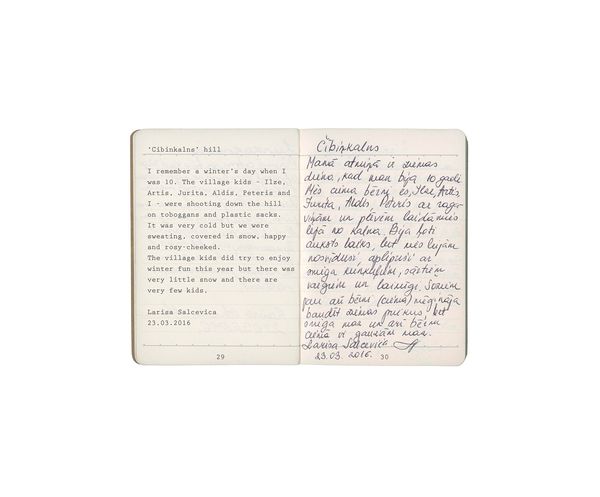 'Cibiņkalns' hill
I remember a winter's day when I
was 10. The village kids - Ilze,
Artis, Jurita, Aldis, Peteris and
I - were shooting down the hill
on toboggans and plastic sacks.
It was very cold but we were
sweating, covered in snow, happy
and rosy-cheeked.
The village kids did try to enjoy
winter fun this year but there was
very little snow and there are
very few kids.
Larisa Salcevica
23.03.2016
29
Cibiņkalns
Manā atmiņā ir ziemas
diena, kad man bija 10 gadi.
Mēs ciema bērni es, Ilze, Artis,
Jurita, Aldis, Peteris ar raga-
viņām un plēvēm laidāmies
lejā no kalna. Bija ļoti
auksts laiks, bet mēs bijām
nosvīduši, aplipuši ar
sniega kunkuļiem, sārtiem
vaigiem un laimīgi. Šoziem
jau arī bērni (ciema) mēģināja
baudīt ziemas priekus, bet
sniega maz un arī bērnu
ciemā ir gaužām maz.
Larisa Salceviča
23.03.2016.
30